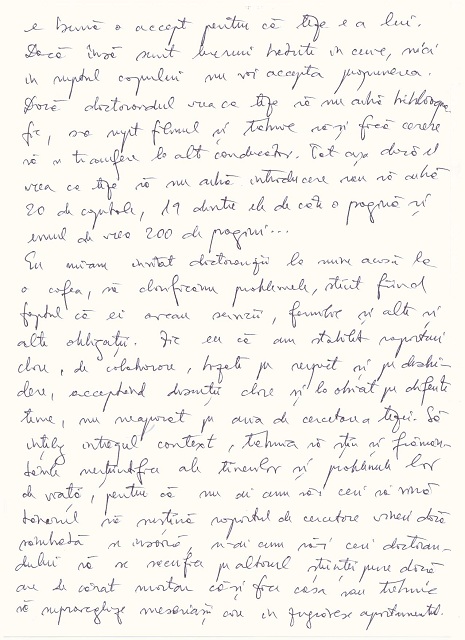 e bună o accept pentru că teza e a lui.
Dacă însă sunt lucruri hazlii in cerere, nici
in ruptul capului nu voi accepta propunerea.
Dacă doctorandul vrea ca teza să nu aibă bibliogra-
fie, s-a rupt filmul și trebuie să-și facă cerere
să se transfere la alt conducător. Tot așa dacă el
vrea ca teza să nu aibă introducere sau să aibă
20 de capitole, 19 dintre ele de câte o pagină și
unul de vreo 200 de pagini...
Eu mi-am invitat doctoranzii la mine acasă la
o cafea, să clarificăm problemele, știut fiind
faptul că ei aveau servicii, familie și alte și
alte obligații. Zic eu că am stabilit raporturi
clare, de colaborare, bazate pe respect și pe deschi-
dere, acceptând discuții clare și la obiect pe diferite
teme, nu neapărat pe aria de cercetare a tezei. Să
înțeleg întregul context, trebuia să știu și frămân-
tările ale tinerilor și problemele lor
de viață, pentru că nu ai cum să-i ceri să
să susțină raportul de cercetare vineri dacă
sâmbătă se însoară, n-ai cum să-i ceri doctoran-
dului să se sacrifice pe altarul științei pure dacă
are de cărat mortar că-și face casa sau trebuie
să supravegheze meseriașii care îi zugrăvesc apartamentul.